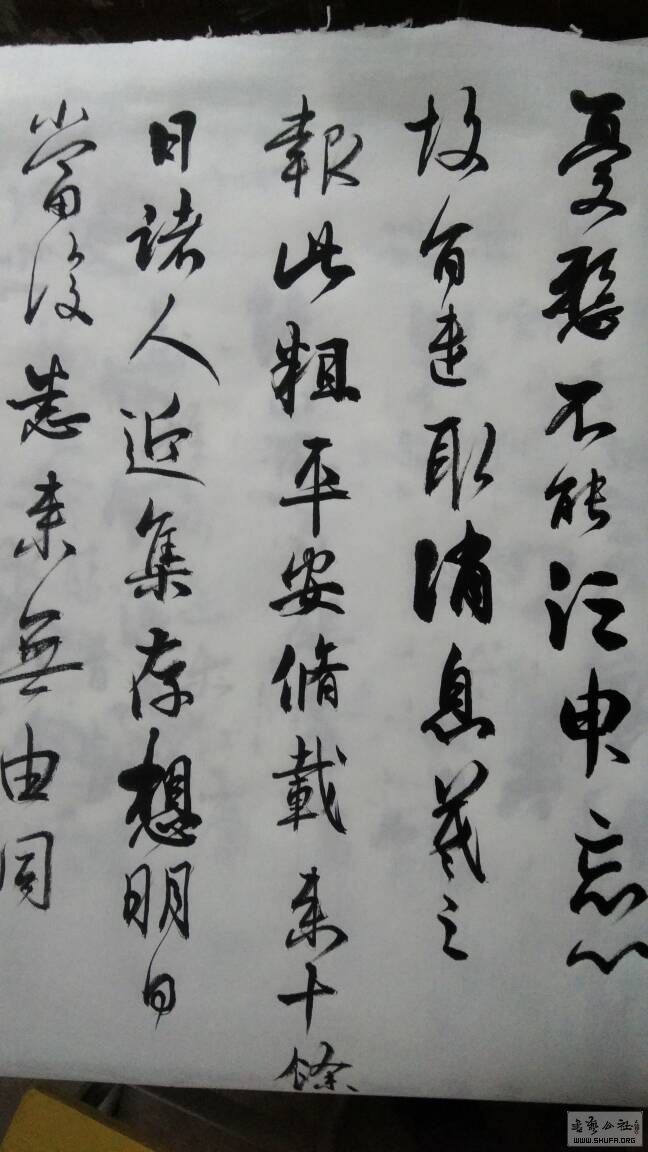 憂懸不能須臾忘心
故旨遣取消息羲之
報此粗平安脩載來十餘
日諸人近集存想明日
當復悉來無由同
書藝公社
WWW.SHUFA.ORG